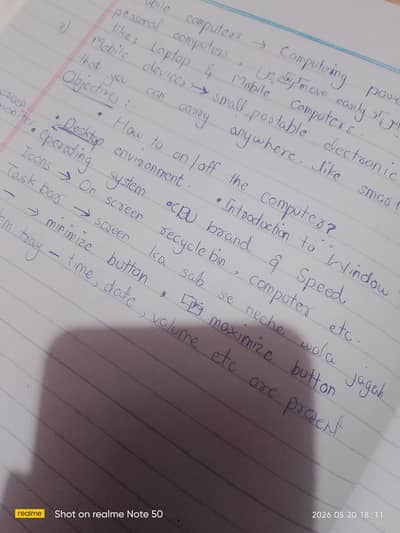 computers → Computing power
personal computers, move easily
likes Laptop & Mobile computers
2) Mobile devices → small, portable electronic
that you can carry anywhere, like smart
Objectives:
• How to on/off the computer?
• Desktop environment. • Introduction to Window
• Operating system • CPU brand & Speed
Icons → On screen recyclebin, computer etc.
Task bar → screen ka sab se neche wala jagah
– → minimize button • maximize button
tray – time, date, volume etc are present
realme Shot on realme Note 50
2026.05.20 18:11